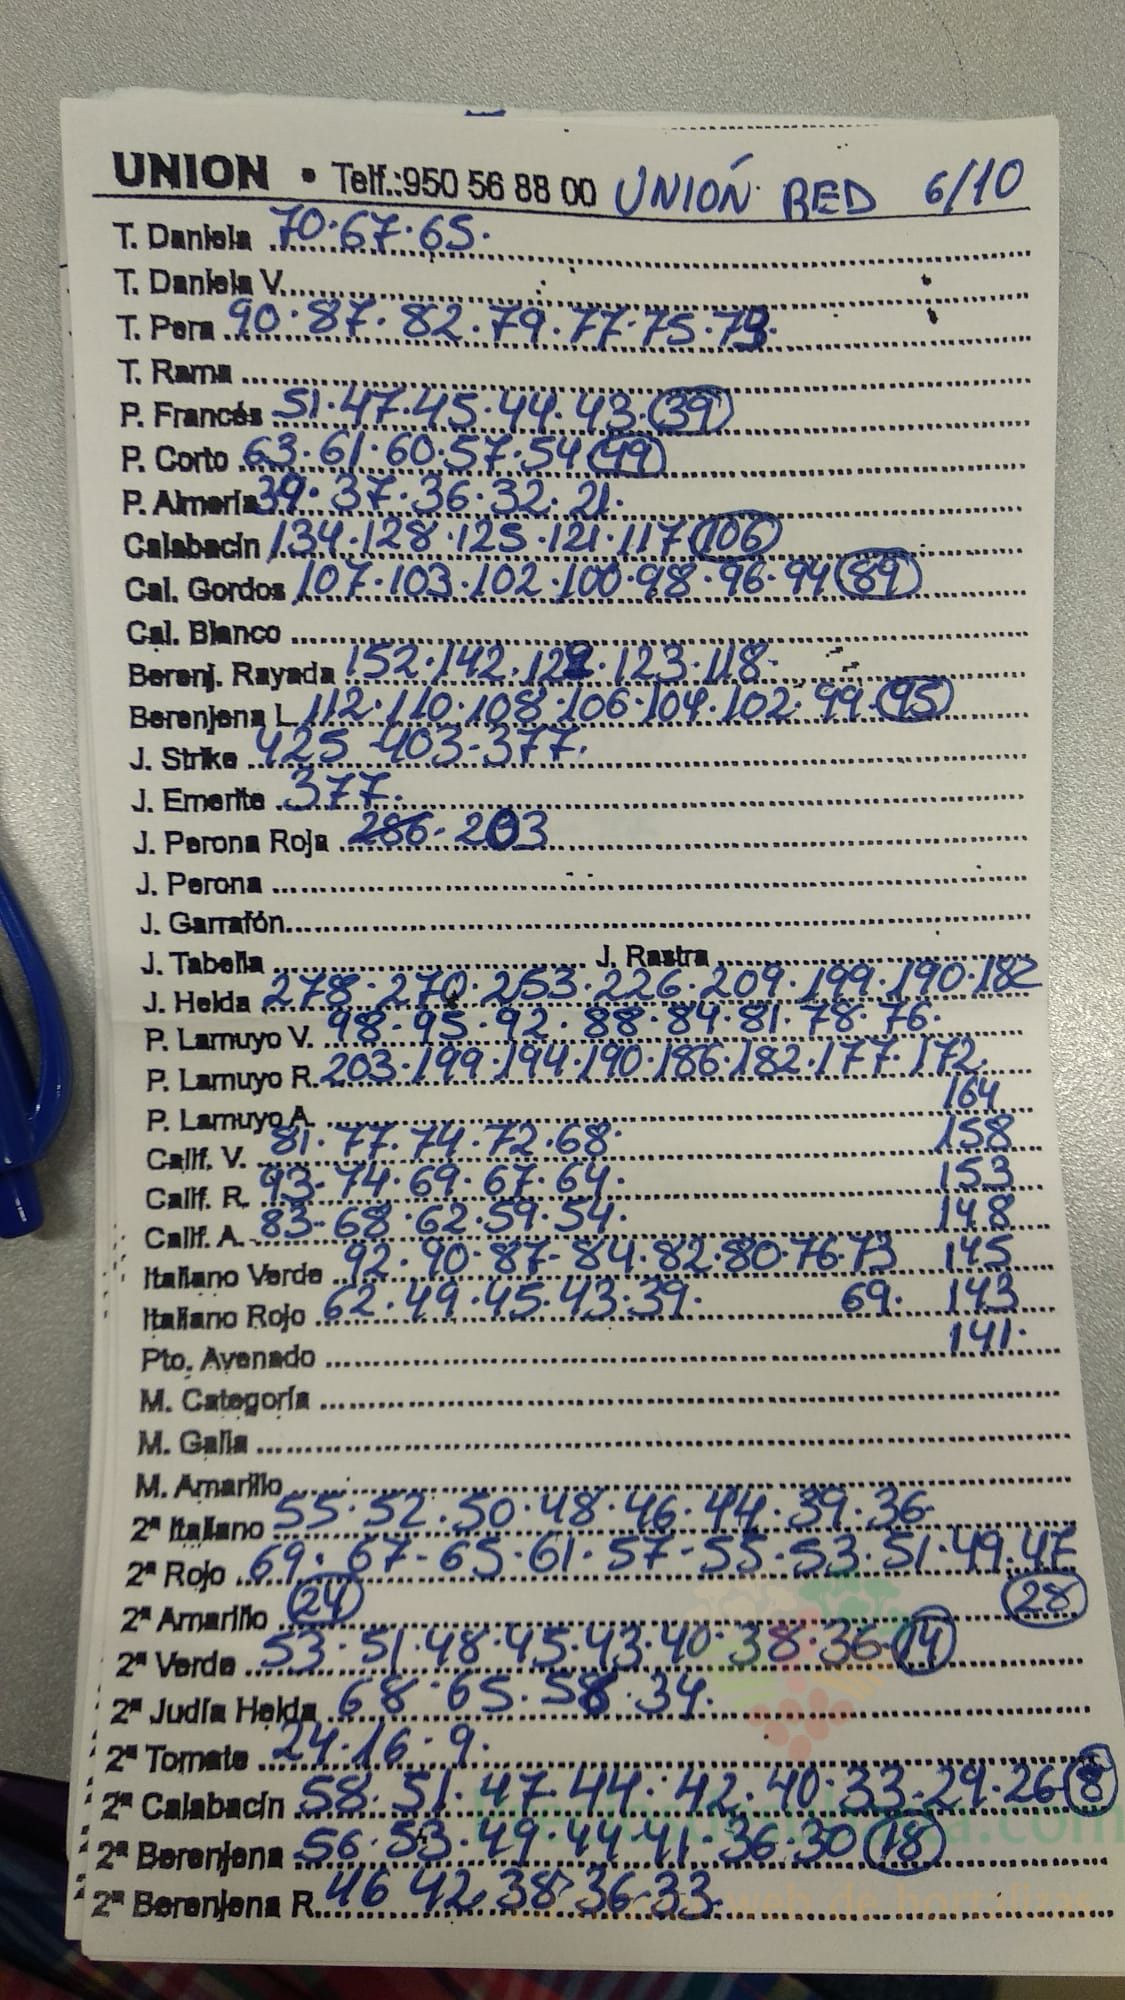 UNION • Telf.:950 56 88 00 UNIÓN RED 6/10
T. Daniela 70·67·65·
T. Daniela V.
T. Pera 90·87·82·79·77·75·73·
T. Rama
P. Francés 51·47·45·44·43·39
P. Corto 63·61·60·57·54 49
P. Almería 39·37·36·32·21·
Calabacín 134·128·125·121·117 106
Cal. Gordos 107·103·102·100·98·96·94 89
Cal. Blanco
Berenj. Rayada 152·142·129·123·118·
Berenjena L. 112·110·108·106·104·102·99·95
J. Strike 425·403·377·
J. Emerite 377·
J. Perona Roja 286·203
J. Perona
J. Garrafón
J. Tabella J. Rastra
J. Helda 278·270·253·226·209·199·190·182
P. Lamuyo V. 98·95·92·88·84·81·78·76·
P. Lamuyo R. 203·199·194·190·186·182·177·172·
164
P. Lamuyo A.
Calif. V. 81·77·74·72·68· 158
Calif. R. 93·74·69·67·64· 153
Calif. A. 83·68·62·59·54· 148
Italiano Verde 92·90·87·84·82·80·76·73 145
Italiano Rojo 62·49·45·43·39· 69· 143
Pto. Avenado 141·
M. Categoría
M. Galia
M. Amarillo
2ª Italiano 55·52·50·48·46·44·39·36·
2ª Rojo 69·67·65·61·57·55·53·51·49·47
2ª Amarillo 24 28
2ª Verde 53·51·48·45·43·40·38·36·14
2ª Judía Helda 68·65·58·34·
2ª Tomate 24·16·9·
2ª Calabacín 58·51·47·44·42·40·33·29·26·8
2ª Berenjena 56·53·49·44·41·36·30 18
2ª Berenjena R. 46 42·38·36·33·